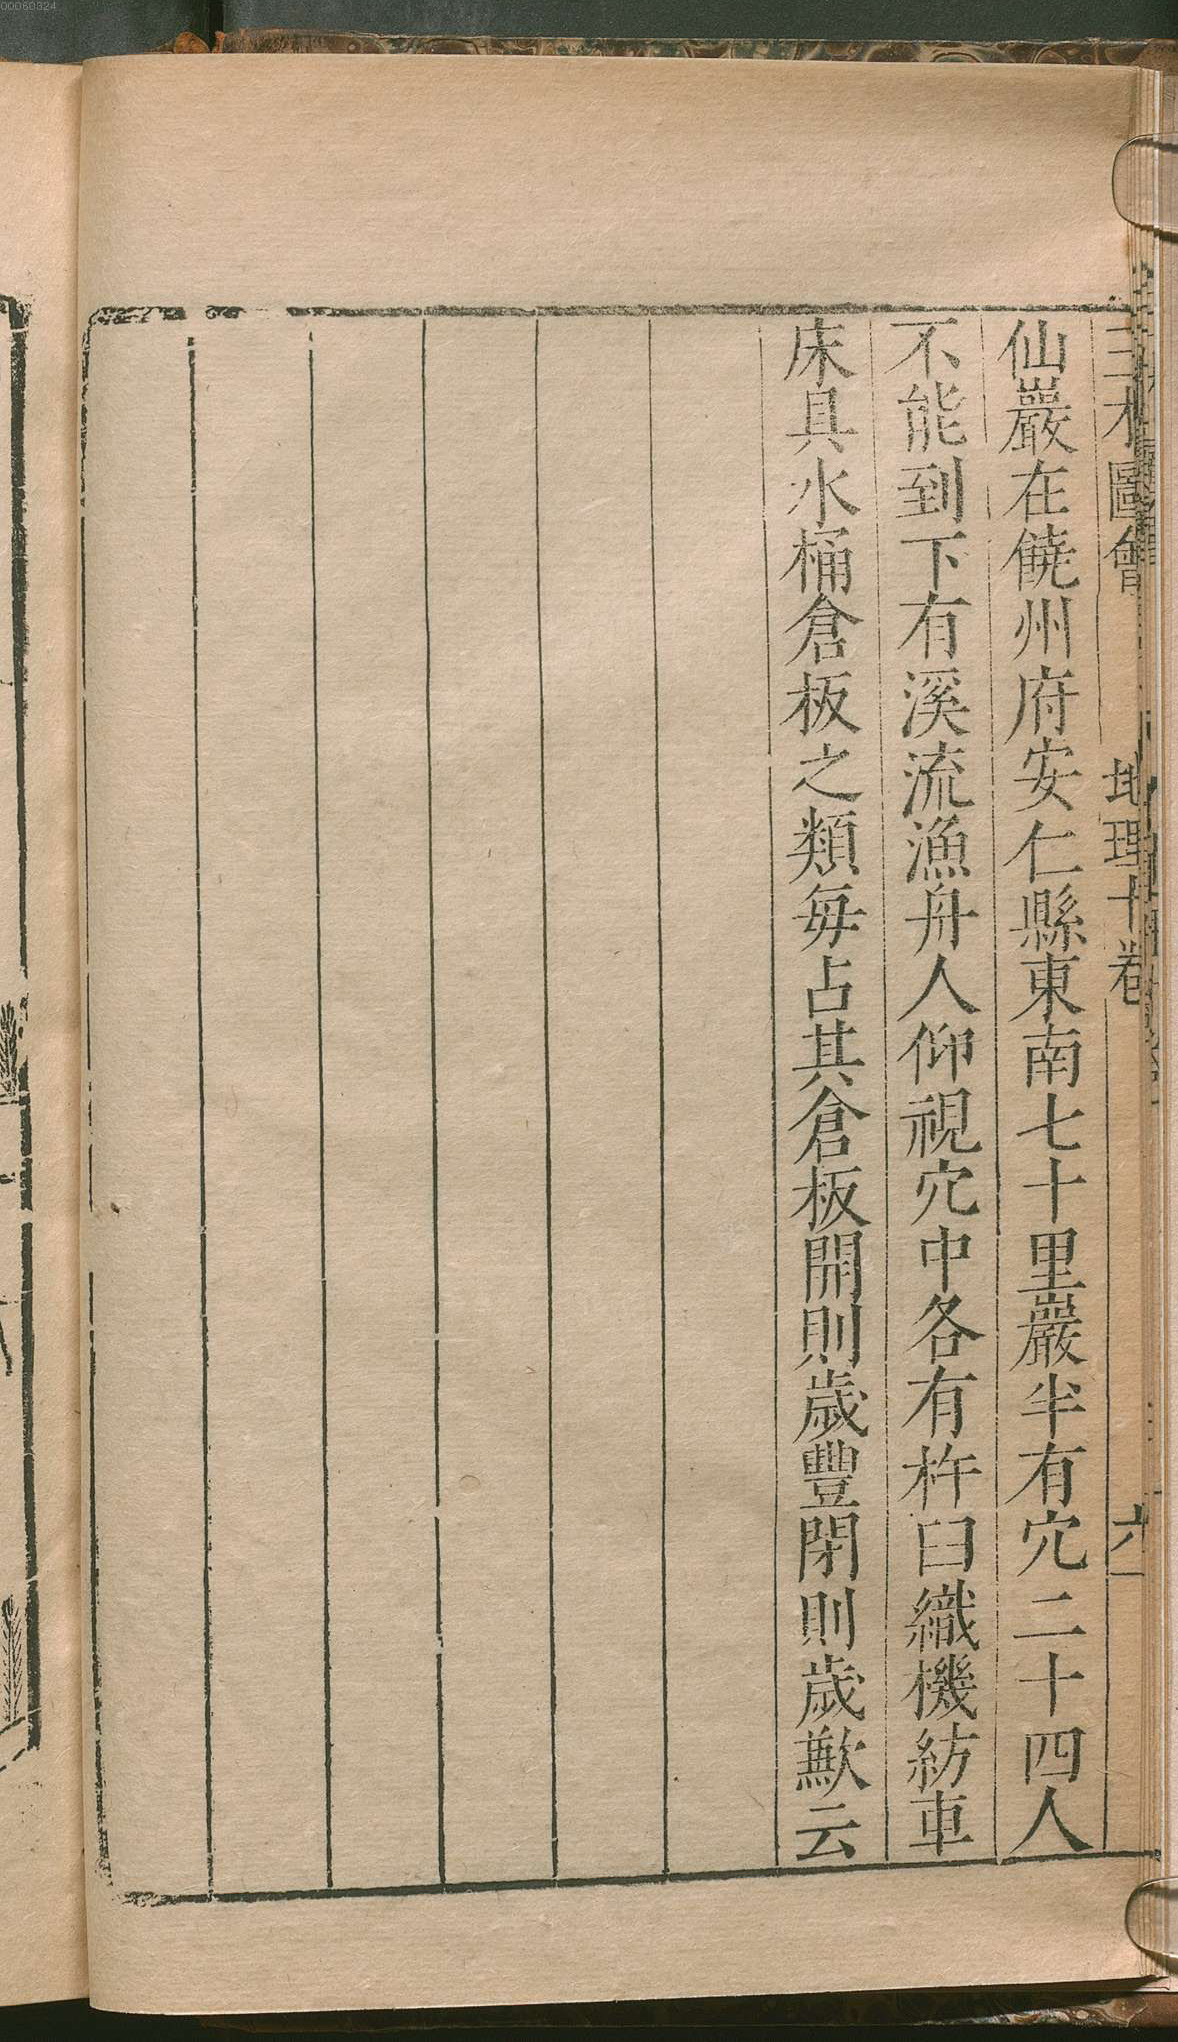 00060324
三才圖會 地理十卷 六
仙巖在饒州府安仁縣東南七十里巖半有穴二十四人
不能到下有溪流漁舟人仰視穴中各有杵臼織機紡車
床具水桶倉板之類每占其倉板開則歲豐閉則歲歉云